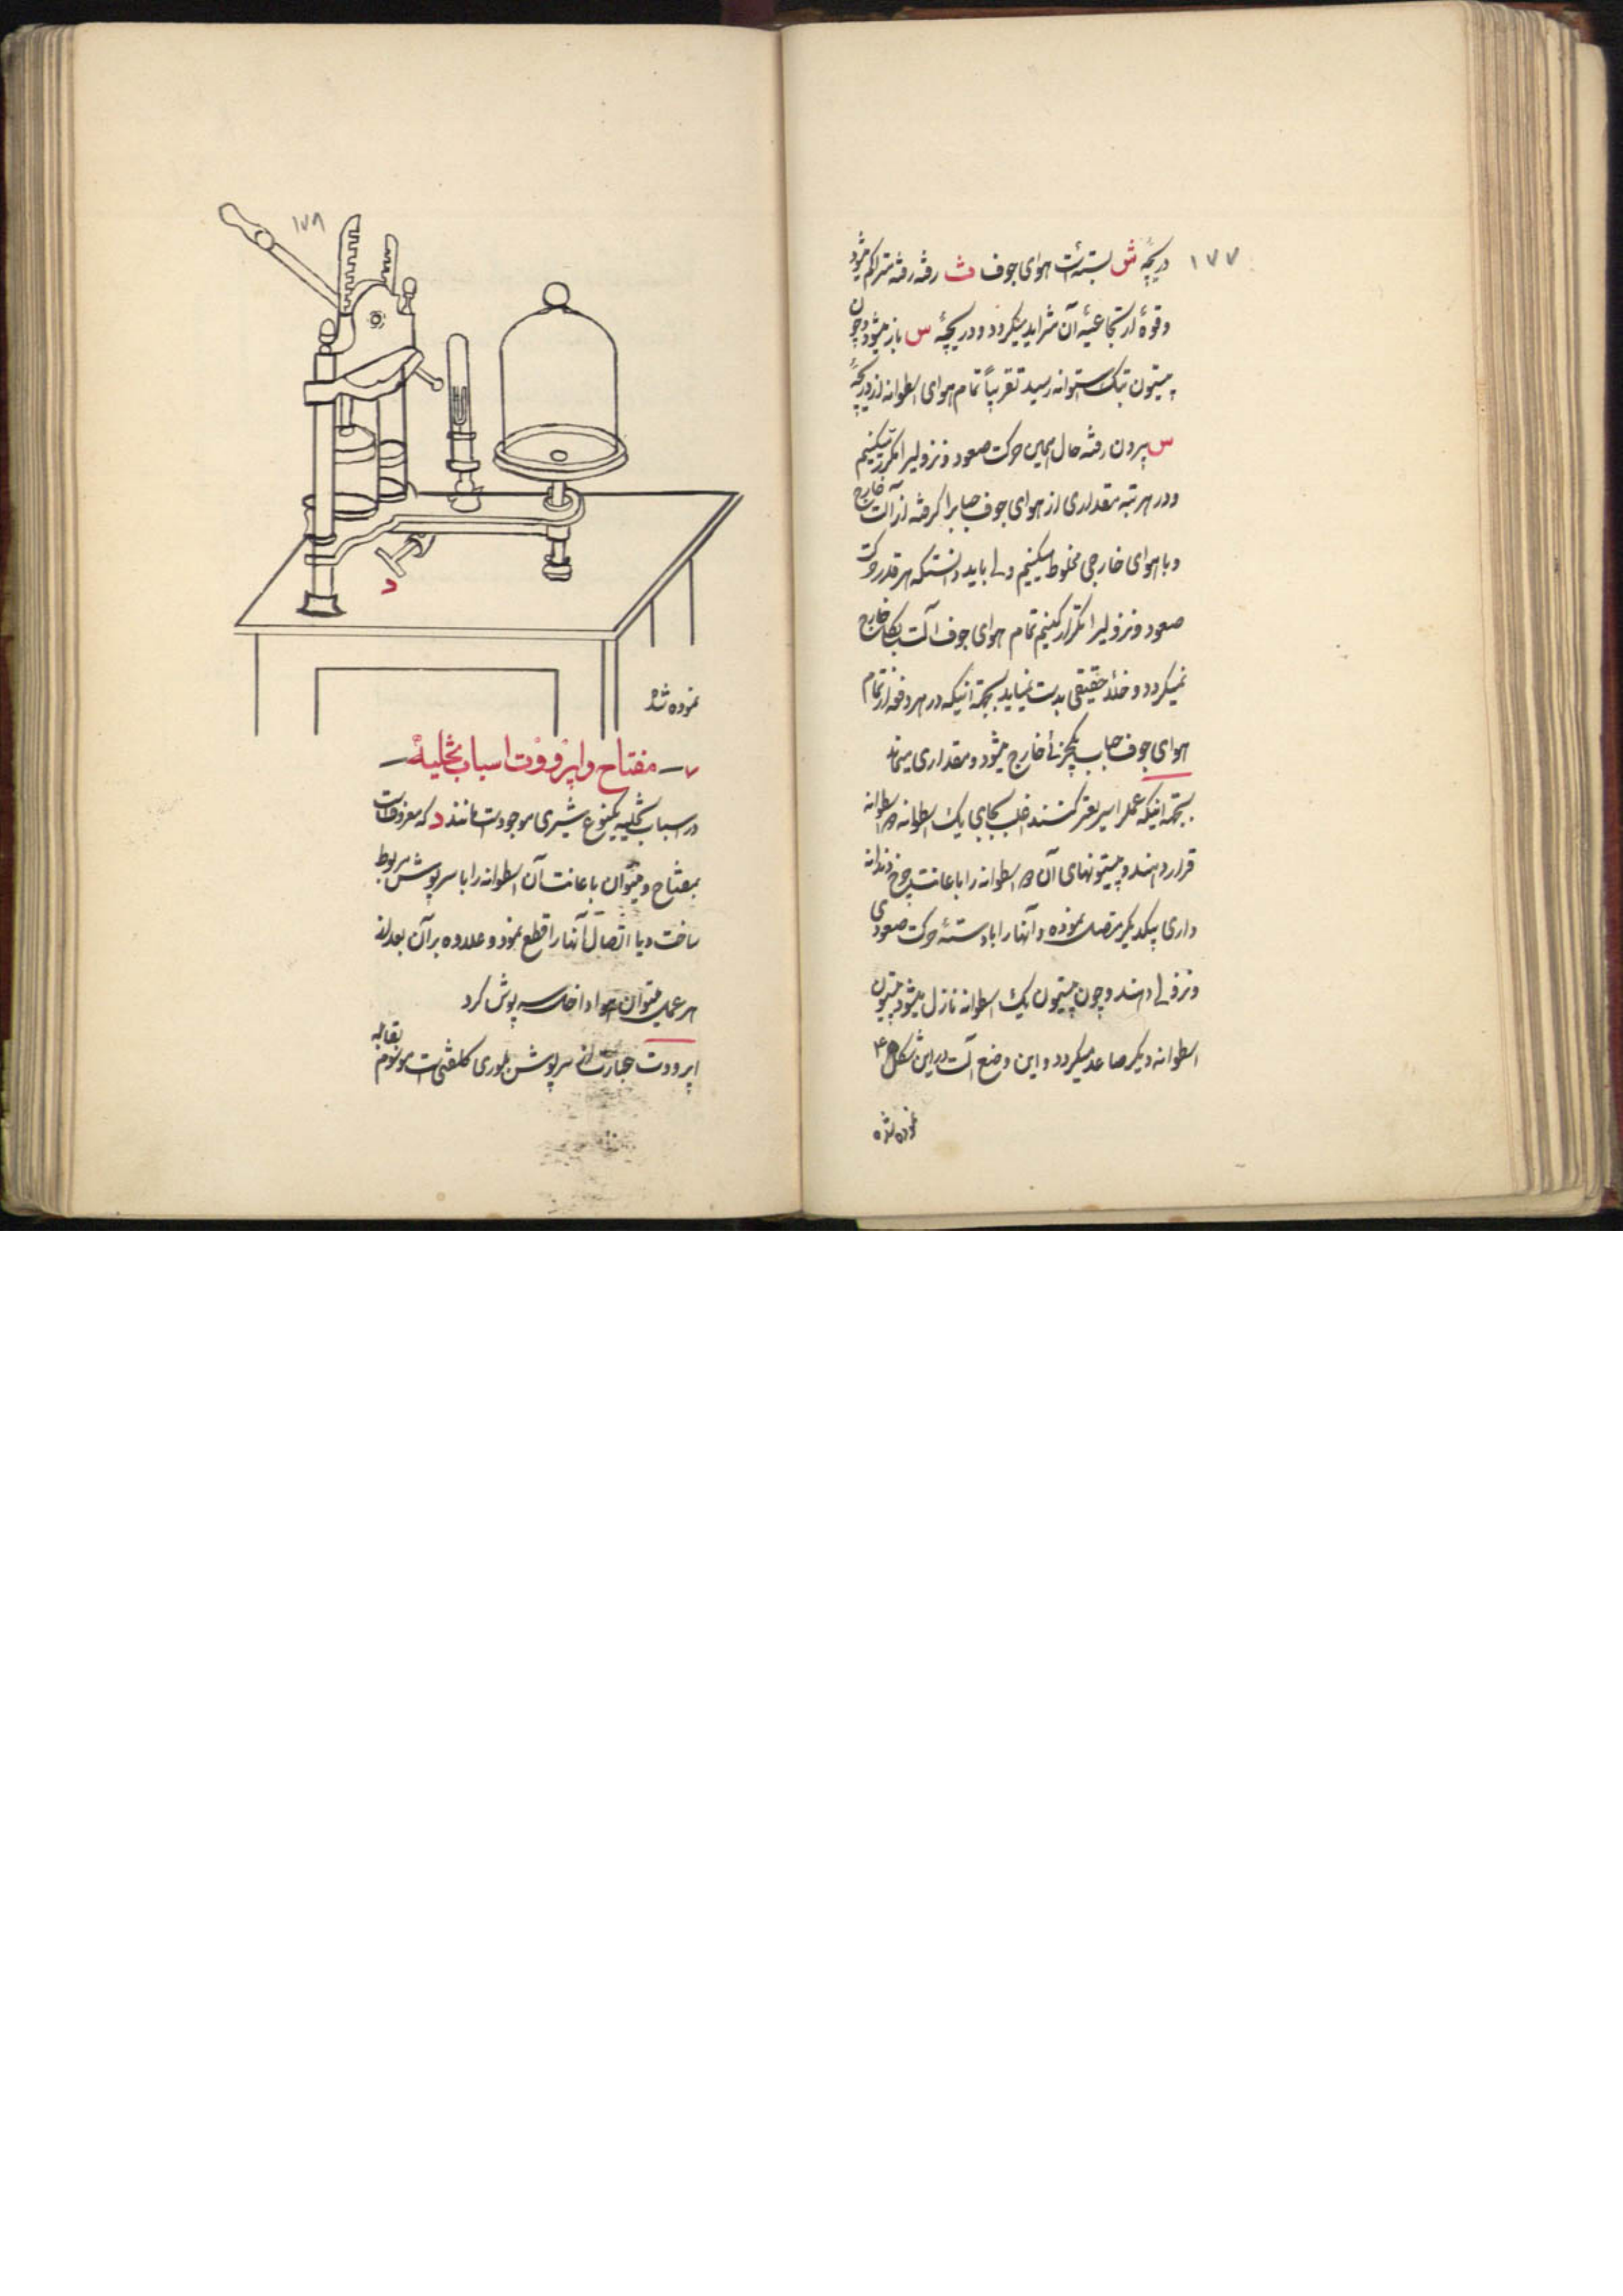 ۱۷۷
دریچهٔ ش بسته است هوای جوف ث رفته رفته متراکم میشود
و قوهٔ ارتجاعیهٔ آن متزاید میگردد و دریچهٔ س باز میشود و چون
پیستون بتک استوانه رسید تقریباً تمام هوای اسطوانه از دریچهٔ
س بیرون رفته حال همین حرکت صعود و نزولیرا مکرر میکنیم
و در هر مرتبه مقداری از هوای جوف حبابرا گرفته از آلت خارج
و با هوای خارجی مخلوط میکنیم ولی باید دانست که هر قدر حرکت
صعود و نزولیرا تکرار کنیم تمام هوای جوف آلت بکلی خارج
نمیگردد و خلاء حقیقی بدست نمیاید بجهة اینکه در هر دفعه از تمام
هوای جوف حباب یکجزئی خارج میشود و مقداری میماند
بجهة اینکه عملرا سریعتر کنند اغلب بجای یک اسطوانه دو اسطوانه
قرار دهند و پیستونهای آن دو اسطوانه را باعانت چرخ دندانه
داری بیکدیگر متصل نموده و آنها را با دستهٔ حرکت صعودی
و نزولی دهند و چون پیستون یک اسطوانه نازل میشود پیستون
اسطوانه دیگر صاعد میگردد و این وضع آلت در این شکل ۴
نموده شده
۱۷۸
د
نموده شد
۷ — مفتاح و اپرووت اسباب تخلیه —
در اسباب تخلیه یکنوع شیری موجود است مانند د که معروف است
بمفتاح و میتوان باعانت آن اسطوانه را با سرپوش مربوط
ساخت و یا اتصال آنها را قطع نمود و علاوه بر آن بعد از
هر عمل میتوان هوا داخل سرپوش کرد
اپرووت عبارت از سرپوش بلوری کلفتی است موسوم بقابله